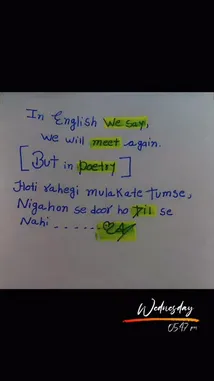 In English we say,
we will meet again.
[But in poetry]
Hoti rahegi mulakate tumse,
Nigahon se door ho Dil se
Nahi
Wednesday